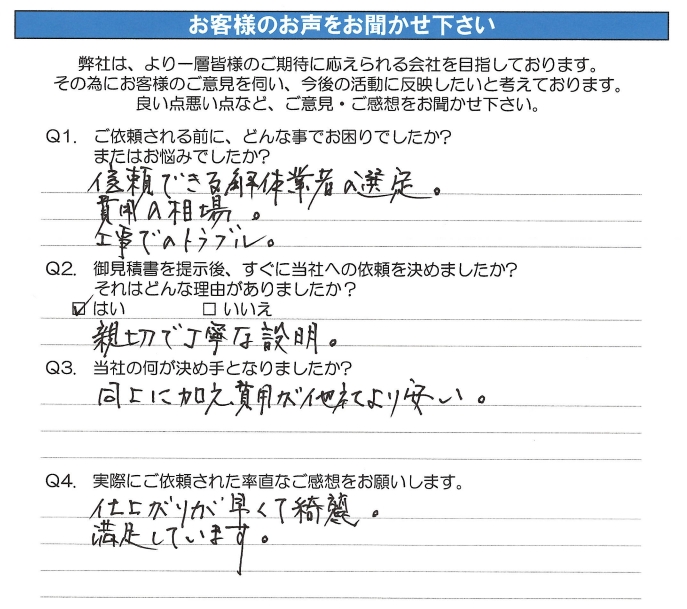 お客様のお声をお聞かせ下さい
弊社は、より一層皆様のご期待に応えられる会社を目指しております。
その為にお客様のご意見を伺い、今後の活動に反映したいと考えております。
良い点悪い点など、ご意見・ご感想をお聞かせ下さい。
Q1. ご依頼される前に、どんな事でお困りでしたか?
またはお悩みでしたか?
信頼できる解体業者の選定。
費用の相場。
工事でのトラブル。
Q2. 御見積書を提示後、すぐに当社への依頼を決めましたか?
それはどんな理由がありましたか?
☑はい □いいえ
親切で丁寧な説明。
Q3. 当社の何が決め手となりましたか?
同上に加え費用が他社より安い。
Q4. 実際にご依頼された率直なご感想をお願いします。
仕上がりが早くて綺麗。
満足しています。